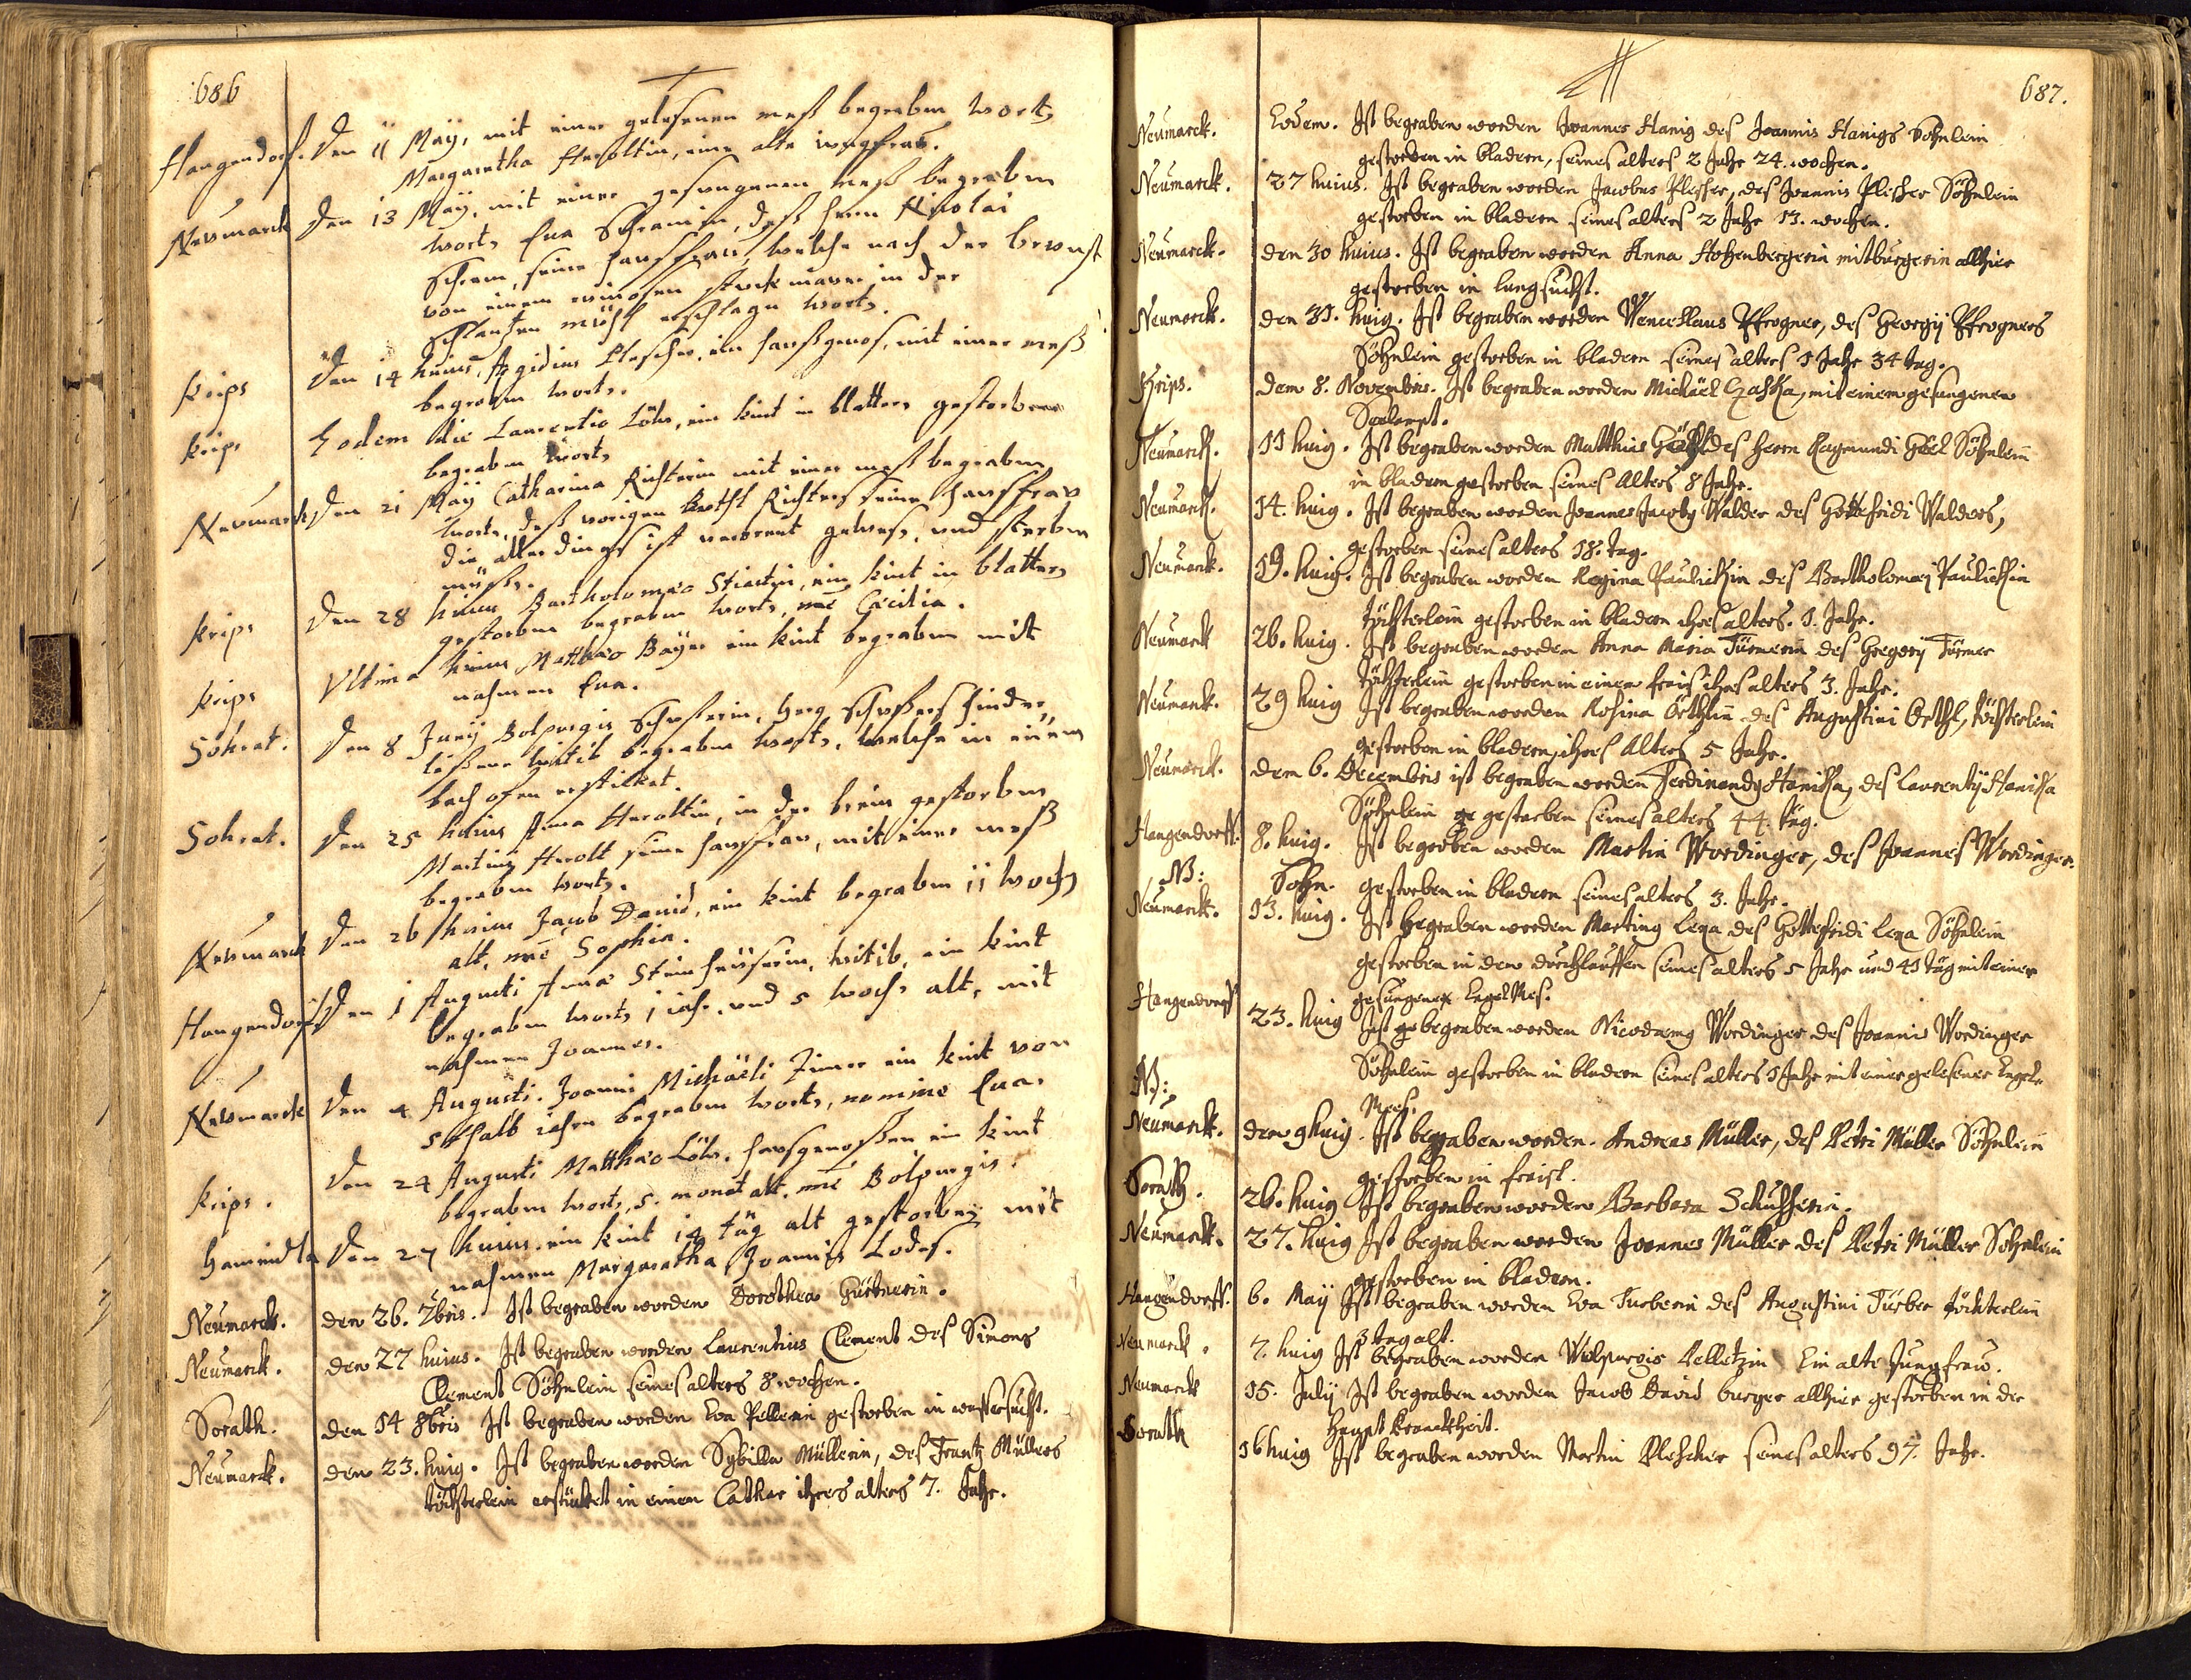 686
Hangendorf. Den 11 Maÿ, mit einer gelesenen meß begraben worden
Margaretha Heroltin, eine alte iungfrau.
Neumarck Den 13 Maÿ, mit einer gesungenen meß begraben
worden Eua Schramin, deß herrn Nicolai
Schram, seine hausfrau, welche nach der brunst
von einem
in der
erschlagen worden.
Krips Den 14 huius, Ægidius Plascher, ein haußgenos, mit einer meß
begraben worden.
Krips Eodem die Laurentio Löw, ein kint in blattern gestorben
begraben worden
Neumarck Den 21 Maÿ Catharina Richterin mit einer meß begraben
worden, deß vorigen Richters seine hausfrau
die allerdings ist gewest, und sterben
müssen.
Krips Den 28 huius Bartholomæo ein kint in blattern
gestorben begraben worden, nne Cæcilia.
Krips Ultima huius Matthæo Baÿer ein kint begraben mit
nahmen Eua.
Sohrat. Den 8 Junÿ Bolpurgis Schusterin,
wittib begraben worden, welche in einem
bach ofen erstickt.
Sohrat. Den 25 huius Anna Heroltin, in der gestorben
Martini Herolt seine hausfrau, mit einer meß
begraben worden.
Neumarck Den 26 huius Jacob Dauid, ein kint begraben 11 wochen
alt, nne Sophia.
Hangendorf Den 1 Augusti Anna wittib, ein kint
begraben worden 1 iahr und 5 wochen alt, mit
nahmen Joannes.
Neumarck Den 4 Augusti. Joanni Michaeli Zimer ein kint von
5 halb iahren begraben worden, nomine Eua.
Krips. Den 24 Augusti Matthæo Löw. hausgenoßen ein kint
begraben worden, 5. monat alt, nne Bolpurgis.
Den 27 huius. ein kint 14 täg alt gestorben mit
nahmen Margaretha Joannis Lodes.
Neumarck. den 26. 7bris. Ist begraben worden Dorothea Gürtnerin.
Neumarck. den 27 huius. Ist begraben worden Laurentius Clement des Simons
Clement Söhnlein seines alters 8 wochen.
Sorath. den 14 8bris Ist begraben worden Eva Pellerin gestorben in wassersucht.
Neumarck. den 23. huig. Ist begraben worden Sybilla Müllerin, des Frantz Müllers
töchterlein erstickt in einen Cathar ihres alters 7. Jahr.
687.
Neumarck. Eodem. Ist begraben worden Joannes Hanig des Joannis Hanigs Söhnlein
gestorben in bladern, seines alters 2 Jahr 24. wochen.
Neumarck. 27 huius. Ist begraben worden Jacobus Plescher, des Joannis Plescher Söhnlein
gestorben in bladern seines alters 2 Jahr 13. wochen.
Neumarck. den 30 huius. Ist begraben worden Anna Hohenbergerin mitburgerin allhier
gestorben in lungsucht.
Neumarck. den 31. huig. Ist begraben worden Wenceslaus Pfrogner, des Georgij Pfrogners
Söhnlein gestorben in bladern seines alters 1 Jahr 34 tag.
Krips. dem 8. Novembris. Ist begraben worden Michäel mit einem gesungenen
Seelampt.
Neumarck. 11 huig. Ist begraben worden Matthias des Herrn Raymundi Söhnlein
in bladern gestorben seines Alters 8 Jahr.
Neumarck. 14. huig. Ist begraben worden Joannes Jacobg Walder des Gottefridi Walders,
gestorben seines alters 18. tag.
Neumarck. 19. huig. Ist begraben worden Regina Paulickin des Bartholomæi Paulickin
töchterlein gestorben in bladern ihres alters. 1. Jahr.
Neumarck 26. huig. Ist begraben worden Anna Maria Türmerin des Gregorij Türmer
töchterlein gestorben in einem frais ihres alters 3. Jahr.
Neumarck. 29 huig Ist begraben worden Rosina Örthlin des Augustini Örthl, töchterlein
gestorben in bladern, ihres Alters 5 Jahr.
Neumarck. dem 6. Decembris ist begraben worden Ferdinandg Hanika, des Laurentij Hanika
Söhnlein ge gestorben seines alters 44. täg.
Hangendorff. 8. huig. Ist begraben worden Martin Wordinger, des Joannes Wordinger
NB: Sohn. gestorben in bladern seines alters 3. Jahr.
Neumarck. 13. huig. Ist begraben worden Marting Lexa des Gottefridi Lexa Söhnlein
gestorben in dem durchlauffen seines alters 5 Jahr und 41 täg mit einer
gesungener Engel Mes.
Hangendorff 23. huig Ist ge begraben worden Nicodemg Wordinger des Joannis Wordinger
Söhnlein gestorben in bladern seines alters 1 Jahr mit einer gelesener Engel
NB: Mess.
Neumarck. dem 9 huig. Ist begraben worden. Andreas Müller, des Petri Müller Söhnlein
gestorben in frais.
Sorath. 26. huig Ist begraben worden Barbara Schusserin.
Neumarck. 27. huig Ist begraben worden Joannes Müller des Petri Müller Sohnlein
gestorben in bladern.
Hangendorff. 6. Maÿ Ist begraben worden Eva Turberin des Augustini Türber töchterlein
3 tag alt.
Neumarck. 7. huig Ist begraben worden Walpurgis Pelletzin Ein alte Jungfrau.
Neumarck 15. Julÿ Ist begraben worden Jacob David burger allhier gestorben in der
haupt kranckheit.
Sorath 16 huig Ist begraben worden Martin Plescher seines alters 97. Jahr.